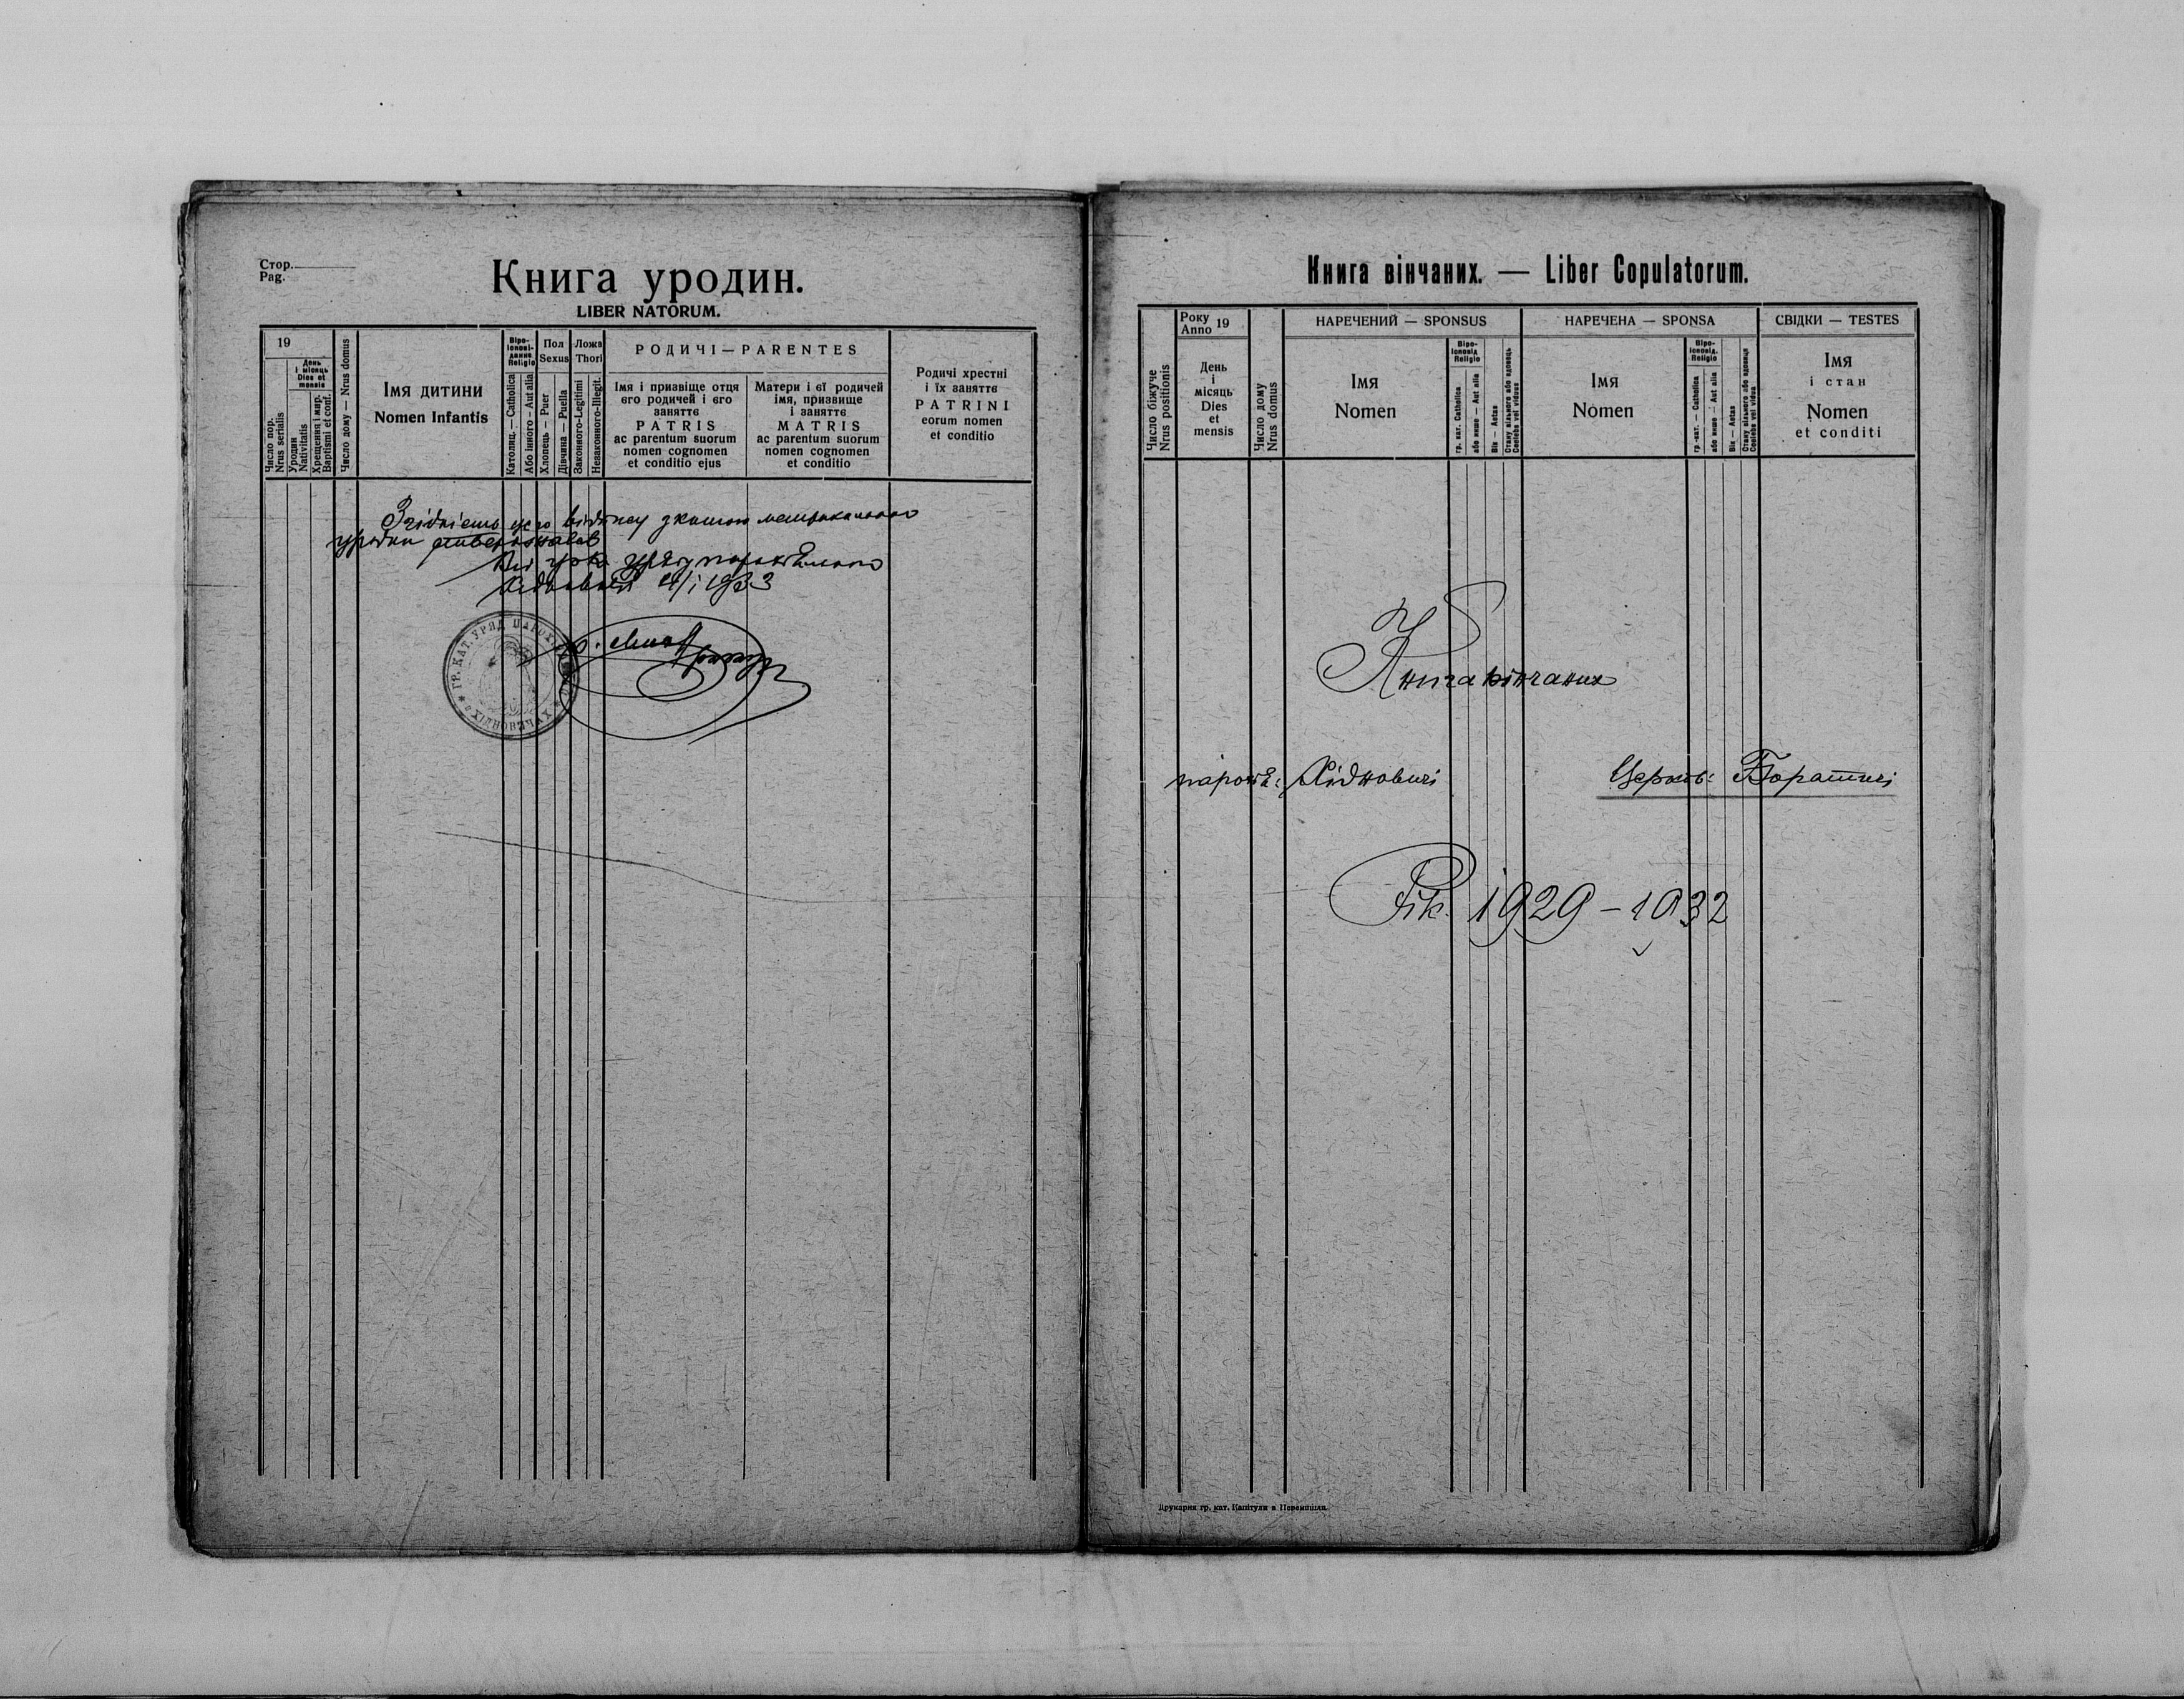 Стор.
Pag.
Книга уродин.
LIBER NATORUM.
19
Число пор.
Nrus serialis
День
і місяць
Dies et
mensis
Уродин
Nativitatis
Хрещення і мир.
Baptismi et conf.
Число дому — Nrus domus
Імя дитини
Nomen Infantis
Віро-
ісповідання
Religio
Католиц. — Catholica
Або інного — Aut alia
Пол
Sexus
Хлопець — Puer
Дівчина — Puella
Ложа
Thori
Законного-Legitimi
Незаконного-Illegit.
РОДИЧІ — PARENTES
Імя і призвіще отця
єго родичей і єго
заняттє
PATRIS
ac parentum suorum
nomen cognomen
et conditio ejus
Матери і єї родичей
імя, призвище
і заняттє
MATRIS
ac parentum suorum
nomen cognomen
et conditio
Родичі хрестні
і їх заняттє
PATRINI
eorum nomen
et conditio
відпису
уродин
уряду
1933
ГР. КАТ. УРЯД
Книга вінчаних. — Liber Copulatorum.
Число біжуче
Nrus positionis
Року 19
Anno
День
і
місяць
Dies
et
mensis
Число дому
Nrus domus
НАРЕЧЕНИЙ — SPONSUS
Імя
Nomen
Віро-
ісповід.
Religio
гр. кат. Catholica
або инше — Aut alia
Вік — Aetas
Стану вільного або вдовець
Coelebs vel viduus
НАРЕЧЕНА — SPONSA
Імя
Nomen
Віро-
ісповід.
Religio
гр.-кат. — Catholica
або инше — Aut alia
Вік — Aetas
Стану вільного або вдовиця
Coelebs vel vidua
СВІДКИ — TESTES
Імя
і стан
Nomen
et conditi
Книга вінчаних
парохія: Хідновичі
Церков: Боратичі
Рік 1929 – 1932
Друкарня гр. кат. Капітули в Перемишли.